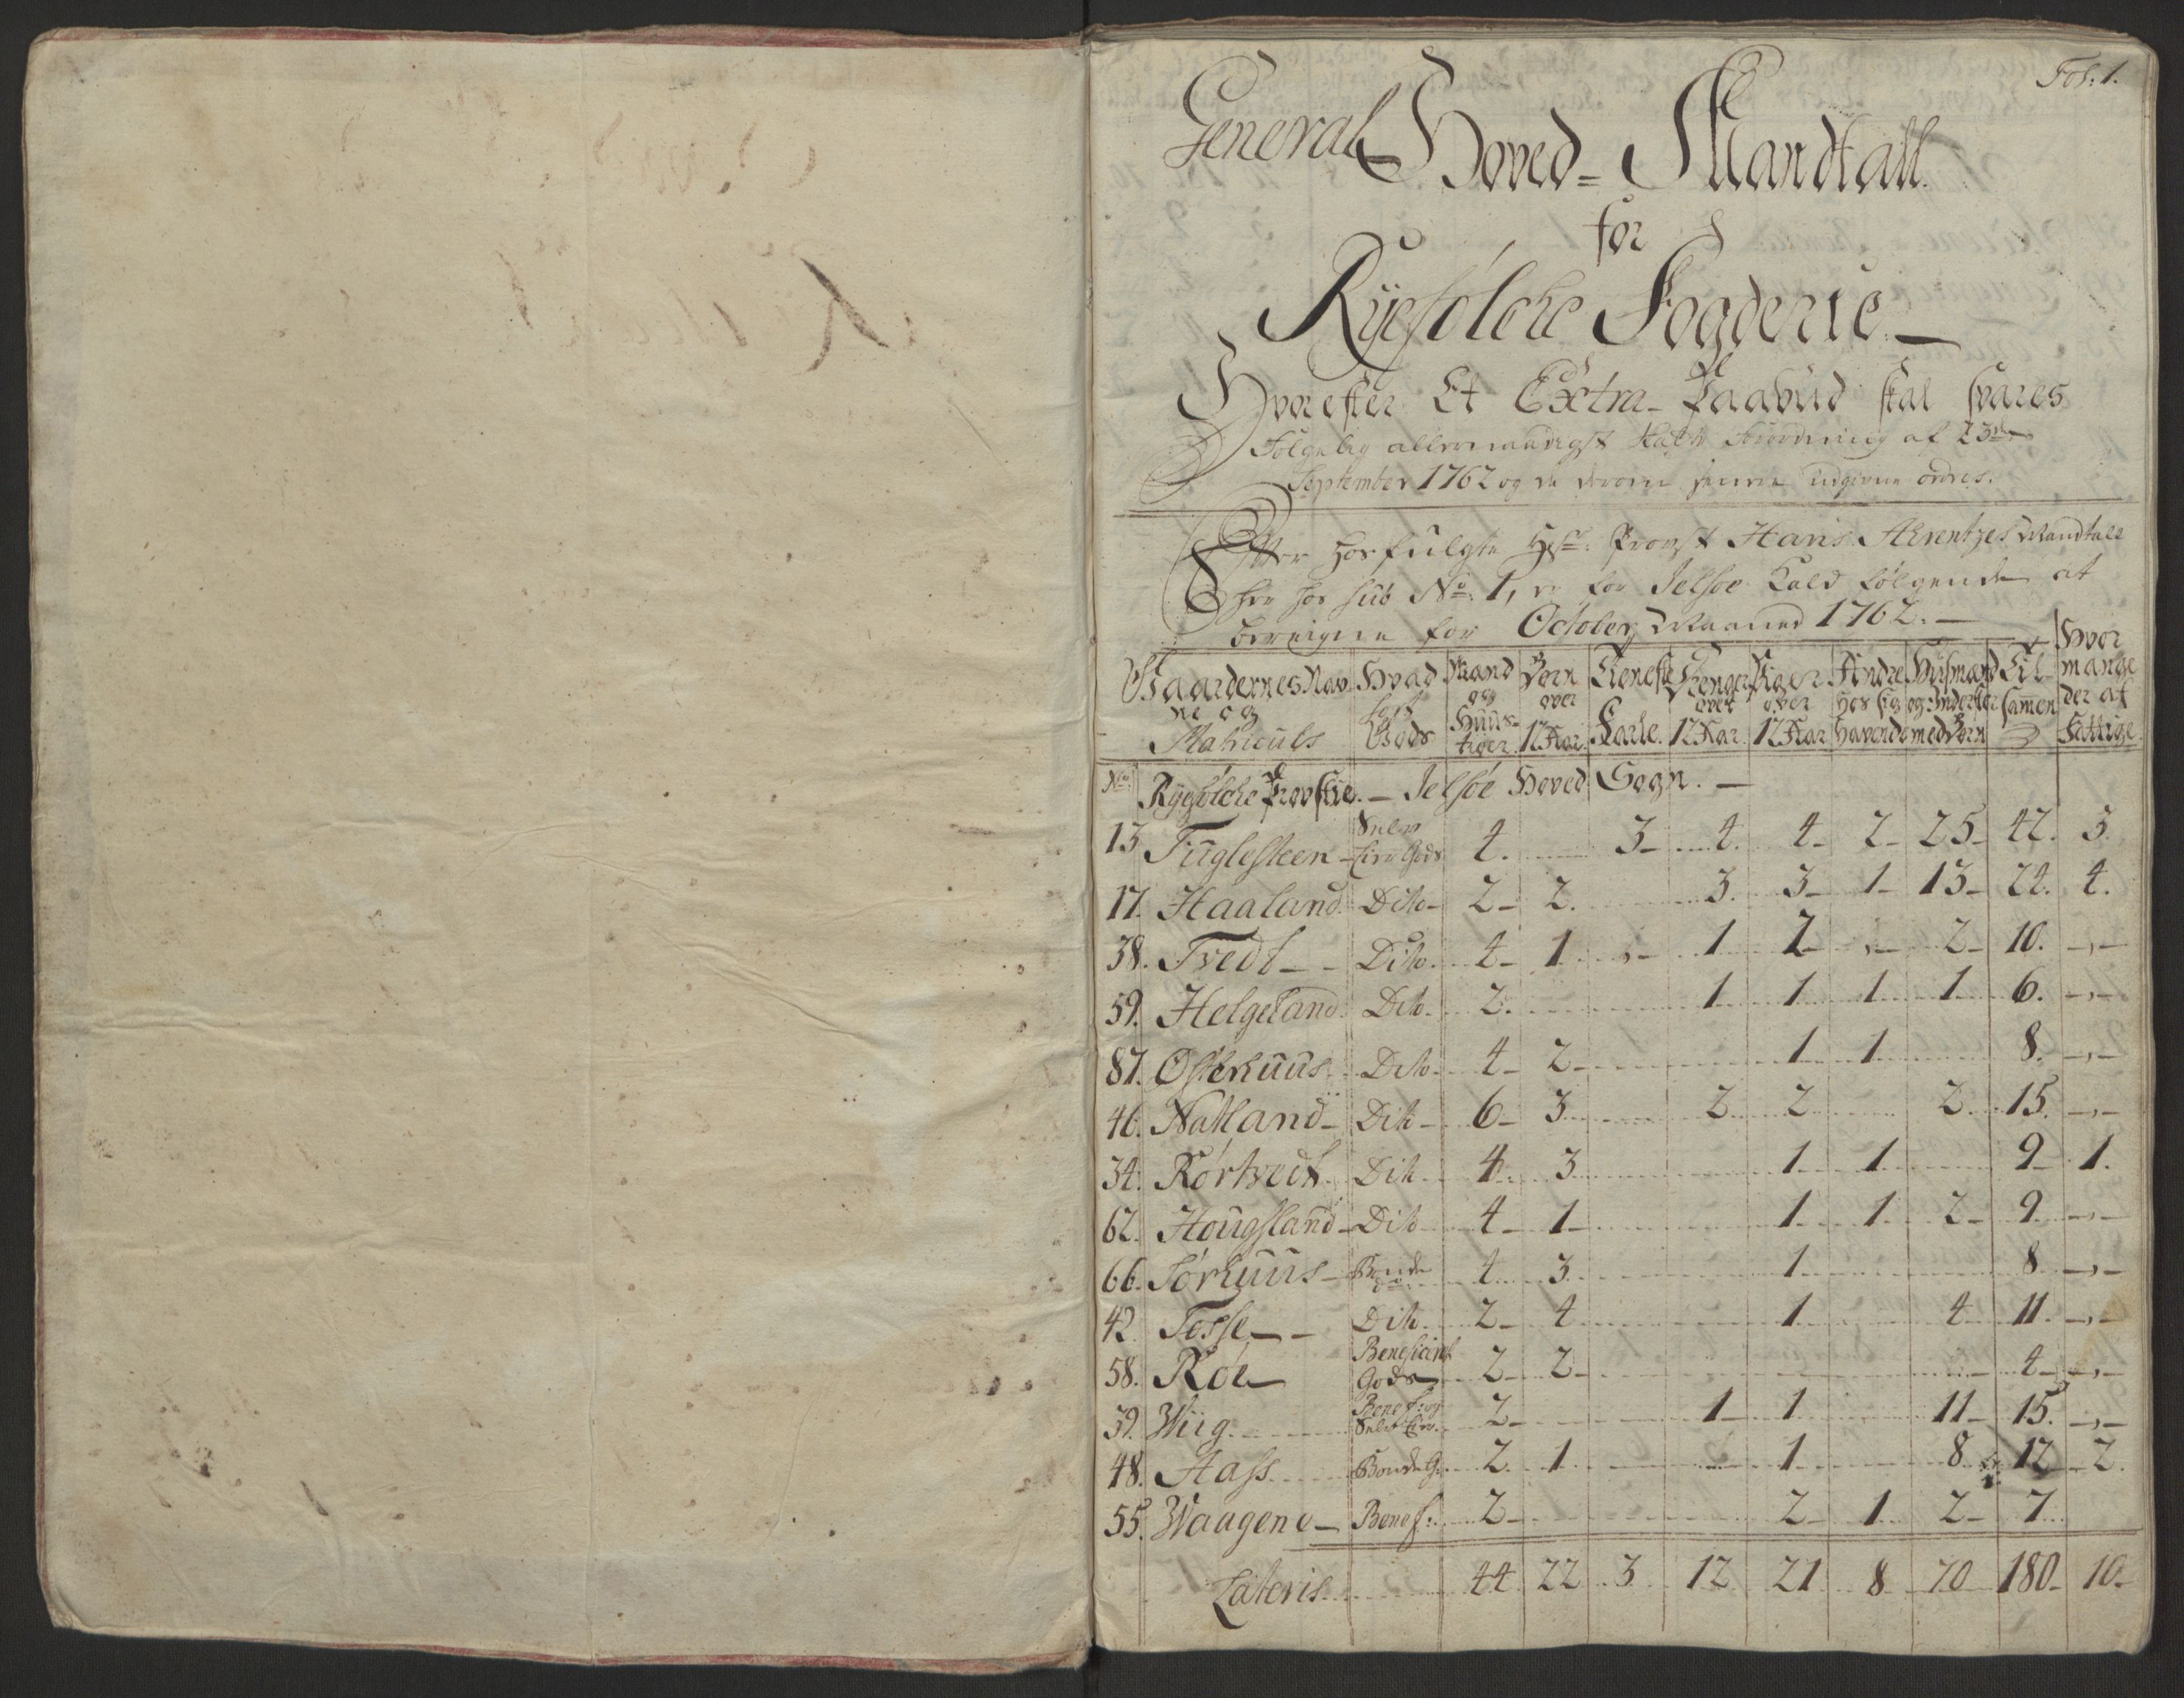 Fol: 1.
General Hoved= Mandtall
for
Ryefölcke Fogderie
Hvorefter Et Extra Paabud skal svares
Følgelig allernaadigst Forordning af 23de
September 1762 og de derom senere udgivne ordres.
Efter hosfulgte Provst Hans Arentzes Mandtall
her hos sub No: 1, er for Jelsøe Kald følgende at
beregne for October Maaned 1762. —
Gaardernes Navne og Matriculs No | Hvad Gods | Mand og Huustroer | Børn over 12 Aar. | Tieneste Karle. | Drenger over 12 Aar. | Piger over 12 Aar | Andre hos sig havende | Huusmænd og Inderster med Børn | Tilsamen | Hvor mange der af fattige
Ryefölcke Provstie. — Jelsöe Hoved Sogn. —
13 Fuglesteen Selv Eier Gods 4. 3 4. 4 2 25 42. 3.
17. Haaland Dito 2 2. 3. 3 1 13 24. 4.
38. Tvedt Dito. 4 1 „ 1 2 „ 2 10. „
59. Helgeland Dito. 2. 1 1 1 1 6. „
87. Østerhuus Dito 4 2 1 1 8. „
46. Natland Dito 6 3 2 2 2 15. „
34. Rørtvedt Dito 4. 3 1 1 9 1.
62. Hougsland Dito 4 1 1 1 2 9 „
66. Sørhuus Bonde 4 3 1 8 „
42. Fosse Dito 2 4 1 4 11. „
58. Röe Beneficert Gods 2 2 4 „
39. Wiig Benef: og Selv Eier 2 1 1 11 15. „
48. Aass Bonde G. 2 1 1 8 12 2.
55. Waagene Benef: 2 2 1 2 7
Lateris 44 22 3 12 21 8 70 180 10